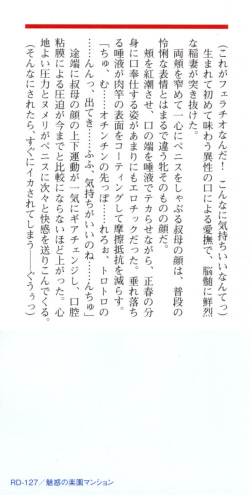 （これがフェラチオなんだ！ こんなに気持ちいいなんてっ）
生まれて初めて味わう異性の口による愛撫で、脳髄に鮮烈
な稲妻が突き抜けた。
両頬を窄めて一心にペニスをしゃぶる叔母の顔は、普段の
怜悧な表情とはまるで違う牝そのものの顔だ。
頬を紅潮させ、口の端を唾液でテカらせながら、正春の分
身に口奉仕する姿があまりにもエロチックだった。垂れ落ち
る唾液が肉竿の表面をコーティングして摩擦抵抗を減らす。
「ちゅ、む……オチンチンの先っぽ……れろぉ、トロトロの
……んんっ、出てき……ふふ、気持ちがいいのね……んちゅ」
途端に叔母の顔の上下運動が一気にギアチェンジし、口腔
粘膜による圧迫が今までと比較にならないほど上がった。心
地よい圧力とヌメリがペニスに次々と快感を送りこんでくる。
（そんなにされたら、すぐにイカされてしまう――ぐうぅっ）
RD-127／魅惑の楽園マンション